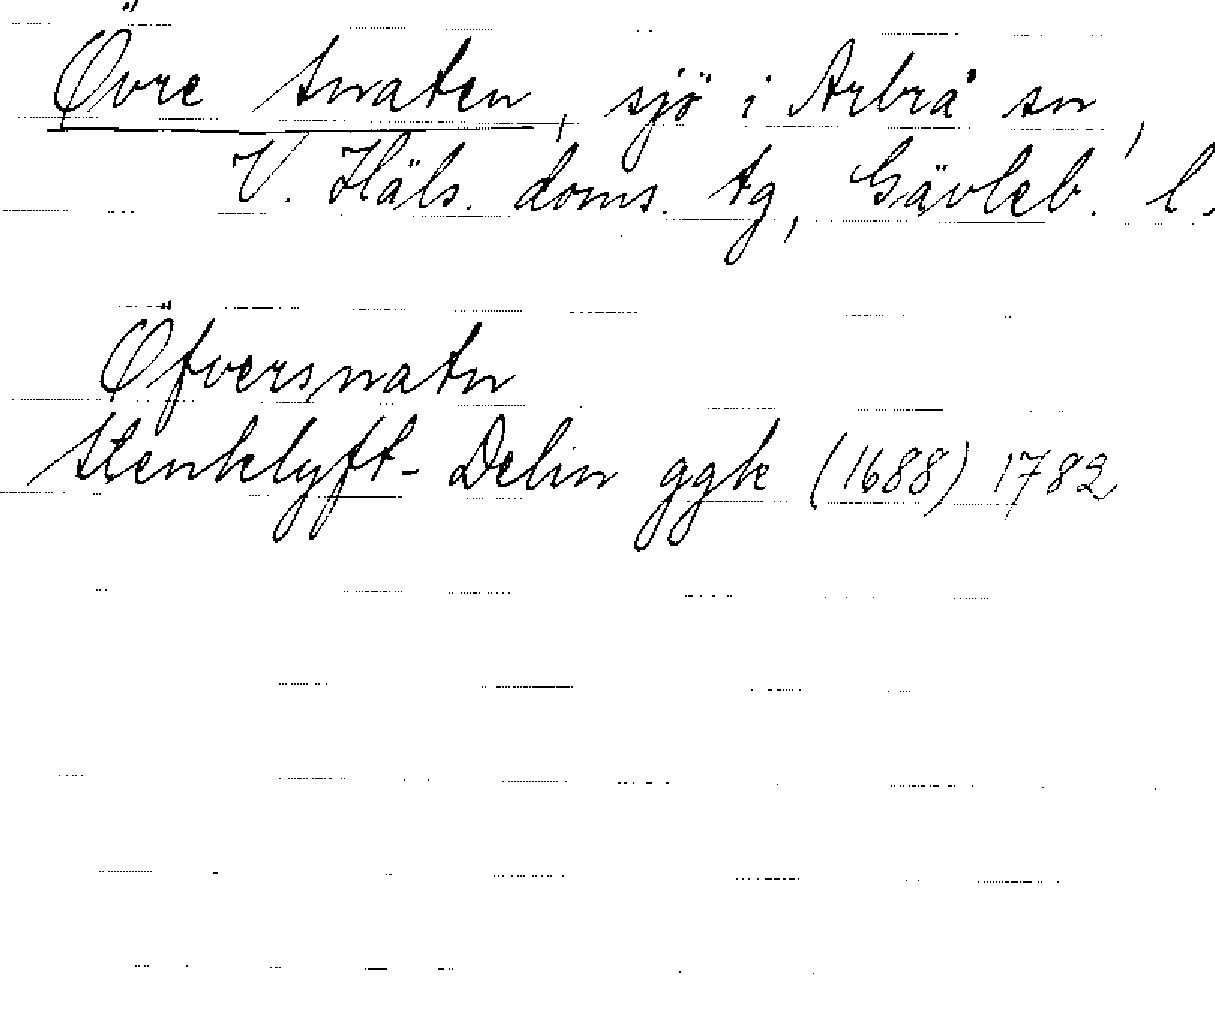 Övre Snaten, sjö i Arbrå sn,
V. Häls. doms. tg, Gävleb. l.
Öfversnatn
Stenklyft-Delin ggk (1688) 1782